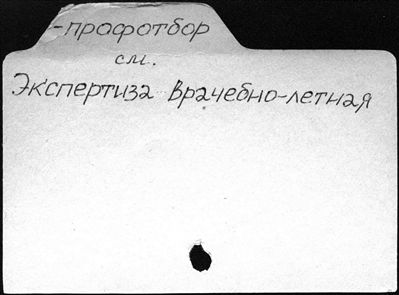 -профотбор
см.
Экспертиза врачебно-летная